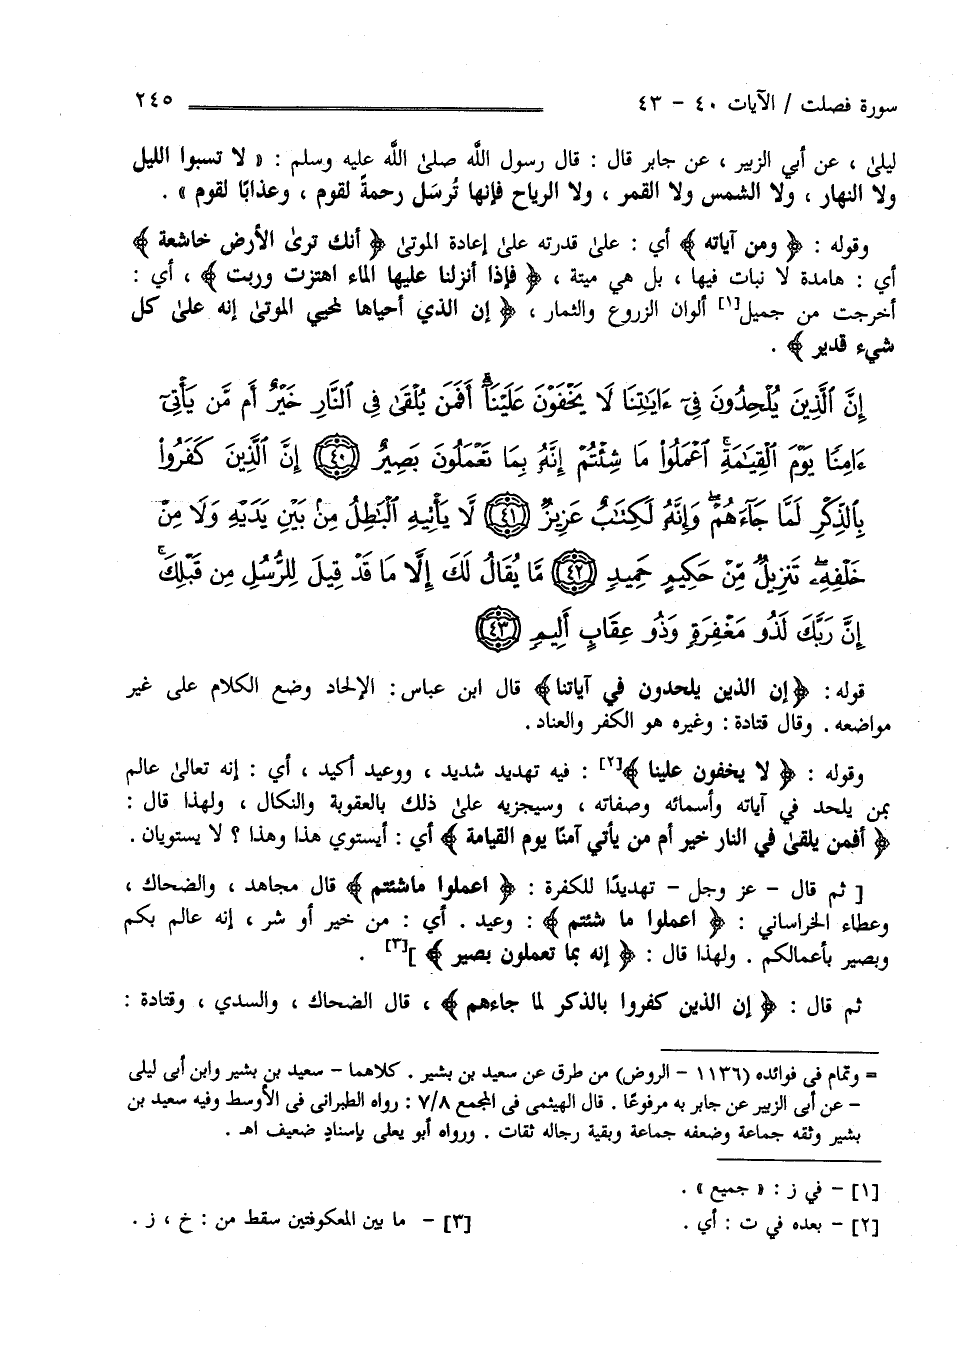 سورة فصلت / الآيات ٤٠ - ٤٣ ٢٤٥
ليلىٰ ، عن أبي الزبير ، عن جابر قال : قال رسول اللَّه صلىٰ اللَّه عليه وسلم : « لا تسبوا الليل
ولا النهار ، ولا الشمس ولا القمر ، ولا الرياح فإنها تُرسَل رحمةً لقوم ، وعذابًا لقوم » .
وقوله : ﴿ ومن آياته ﴾ أي : علىٰ قدرته علىٰ إعادة الموتىٰ ﴿ أنك ترىٰ الأرض خاشعة ﴾
أي : هامدة لا نبات فيها ، بل هي ميتة ، ﴿ فإذا أنزلنا عليها الماء اهتزت وربت ﴾ ، أي :
أخرجت من جميل[١] ألوان الزروع والثمار ، ﴿ إن الذي أحياها لمحيي الموتىٰ إنه علىٰ كل
شيء قدير ﴾ .
إِنَّ ٱلَّذِينَ يُلْحِدُونَ فِىٓ ءَايَـٰتِنَا لَا يَخْفَوْنَ عَلَيْنَآ ۗ أَفَمَن يُلْقَىٰ فِى ٱلنَّارِ خَيْرٌ أَم مَّن يَأْتِىٓ
ءَامِنًا يَوْمَ ٱلْقِيَـٰمَةِ ۚ ٱعْمَلُوا۟ مَا شِئْتُمْ إِنَّهُۥ بِمَا تَعْمَلُونَ بَصِيرٌ ﴿٤٠﴾ إِنَّ ٱلَّذِينَ كَفَرُوا۟
بِٱلذِّكْرِ لَمَّا جَآءَهُمْ ۖ وَإِنَّهُۥ لَكِتَـٰبٌ عَزِيزٌ ﴿٤١﴾ لَّا يَأْتِيهِ ٱلْبَـٰطِلُ مِنۢ بَيْنِ يَدَيْهِ وَلَا مِنْ
خَلْفِهِۦ ۖ تَنزِيلٌ مِّنْ حَكِيمٍ حَمِيدٍ ﴿٤٢﴾ مَّا يُقَالُ لَكَ إِلَّا مَا قَدْ قِيلَ لِلرُّسُلِ مِن قَبْلِكَ ۚ
إِنَّ رَبَّكَ لَذُو مَغْفِرَةٍ وَذُو عِقَابٍ أَلِيمٍ ﴿٤٣﴾
قوله : ﴿إن الذين يلحدون في آياتنا﴾ قال ابن عباس : الإلحاد وضع الكلام على غير
مواضعه . وقال قتادة : وغيره هو الكفر والعناد .
وقوله : ﴿ لا يخفون علينا ﴾[٢] : فيه تهديد شديد ، ووعيد أكيد ، أي : إنه تعالىٰ عالم
بمن يلحد في آياته وأسمائه وصفاته ، وسيجزيه علىٰ ذلك بالعقوبة والنكال ، ولهذا قال :
﴿ أفمن يلقىٰ في النار خير أم من يأتي آمنًا يوم القيامة ﴾ أي : أيستوي هذا وهذا ؟ لا يستويان .
[ ثم قال - عز وجل - تهديدًا للكفرة : ﴿ اعملوا ماشئتم ﴾ قال مجاهد ، والضحاك ،
وعطاء الخراساني : ﴿ اعملوا ما شئتم ﴾ : وعيد . أي : من خير أو شر ، إنه عالم بكم
وبصير بأعمالكم . ولهذا قال : ﴿ إنه بما تعملون بصير ﴾ ][٣] .
ثم قال : ﴿ إن الذين كفروا بالذكر لما جاءهم ﴾ ، قال الضحاك ، والسدي ، وقتادة :
= وتمام فى فوائده (١١٣٦ - الروض) من طرق عن سعيد بن بشير . كلاهما - سعيد بن بشير وابن أبى ليلى
- عن أبى الزبير عن جابر به مرفوعًا . قال الهيثمى فى المجمع ٧/٨ : رواه الطبرانى فى الأوسط وفيه سعيد بن
بشير وثقه جماعة وضعفه جماعة وبقية رجاله ثقات . ورواه أبو يعلى بإسنادٍ ضعيف اهـ .
[١] - في ز : « جميع » .
[٢] - بعده في ت : أي . [٣] - ما بين المعكوفتين سقط من : خ ، ز .